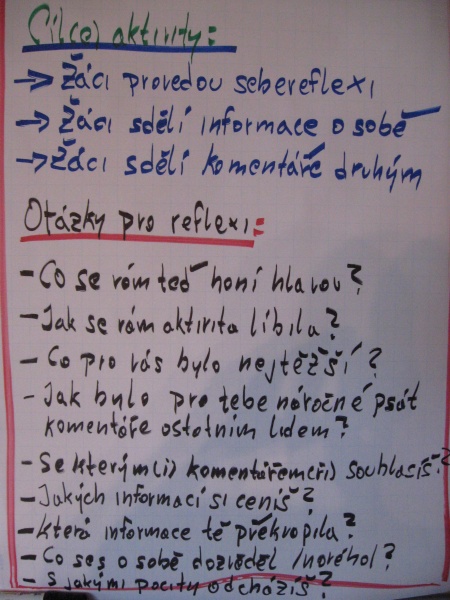 Cíl(e) aktivity:
→ Žáci provedou sebereflexi
→ Žáci sdělí informace o sobě
→ Žáci sdělí komentáře druhým
Otázky pro reflexi:
- Co se vám teď honí hlavou?
- Jak se vám aktivita líbila?
- Co pro vás bylo nejtěžší?
- Jak bylo pro tebe náročné psát
komentáře ostatním lidem?
- Se kterým(i) komentářem(ři) souhlasíš?
- Jakých informací si ceníš?
- Která informace tě překvapila?
- Co ses o sobě dozvěděl /nového/?
- S jakými pocity odcházíš?